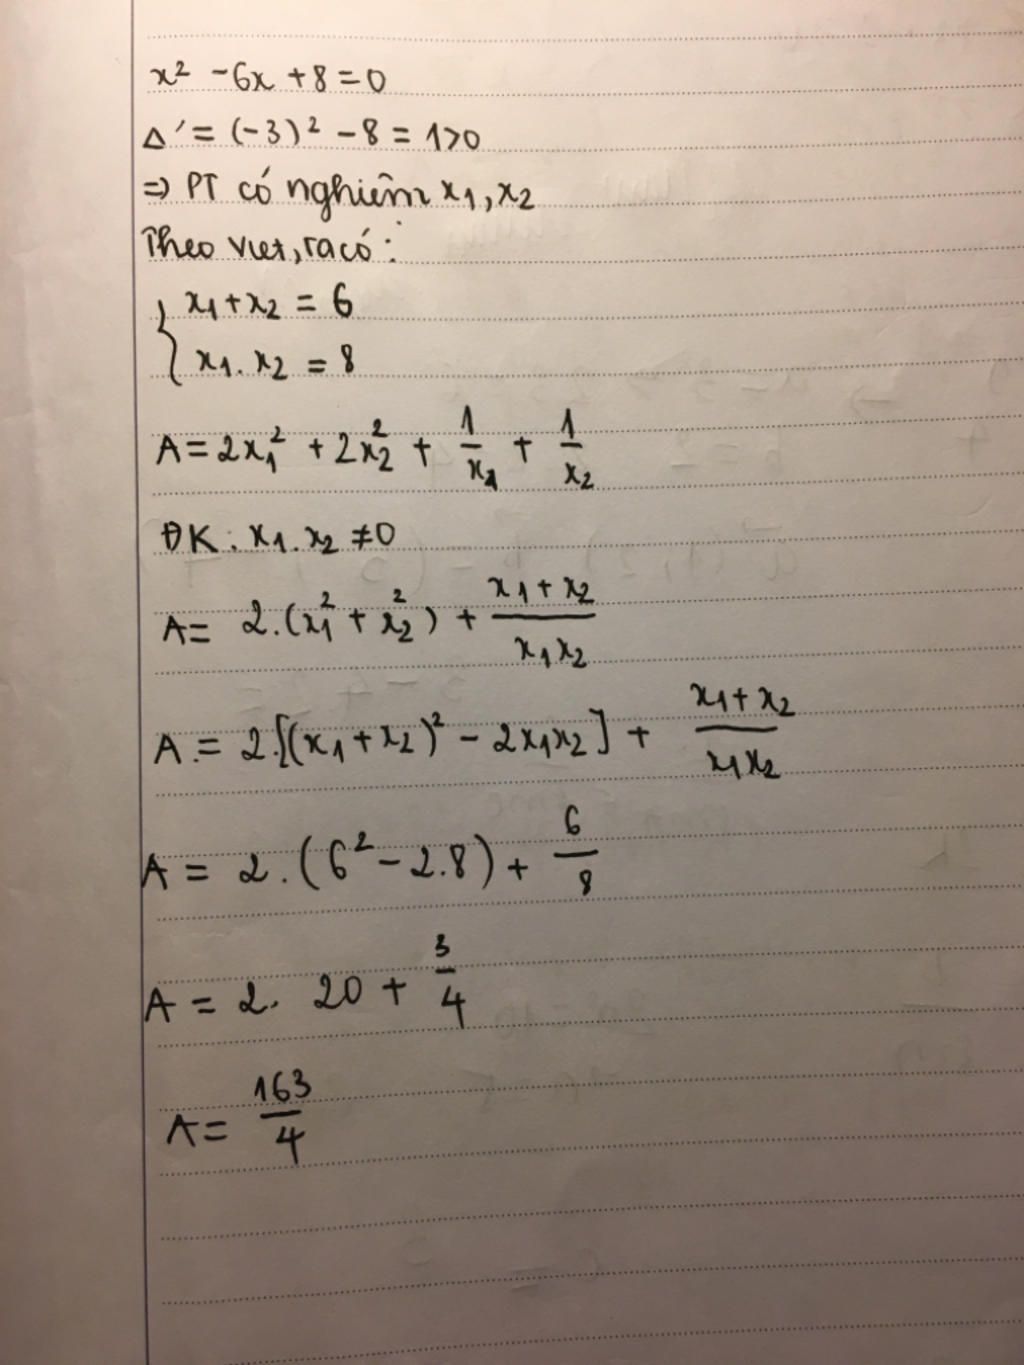 x² - 6x + 8 = 0
Δ' = (-3)² - 8 = 1 > 0
=> PT có nghiệm x₁, x₂
Theo Viet, ta có :
{ x₁ + x₂ = 6
x₁ . x₂ = 8
A = 2x₁² + 2x₂² + 1/x₁ + 1/x₂
ĐK : x₁ . x₂ ≠ 0
A = 2.(x₁² + x₂²) + (x₁ + x₂)/(x₁x₂)
A = 2.[(x₁ + x₂)² - 2x₁x₂] + (x₁ + x₂)/(x₁x₂)
A = 2.(6² - 2.8) + 6/8
A = 2. 20 + 3/4
A = 163/4